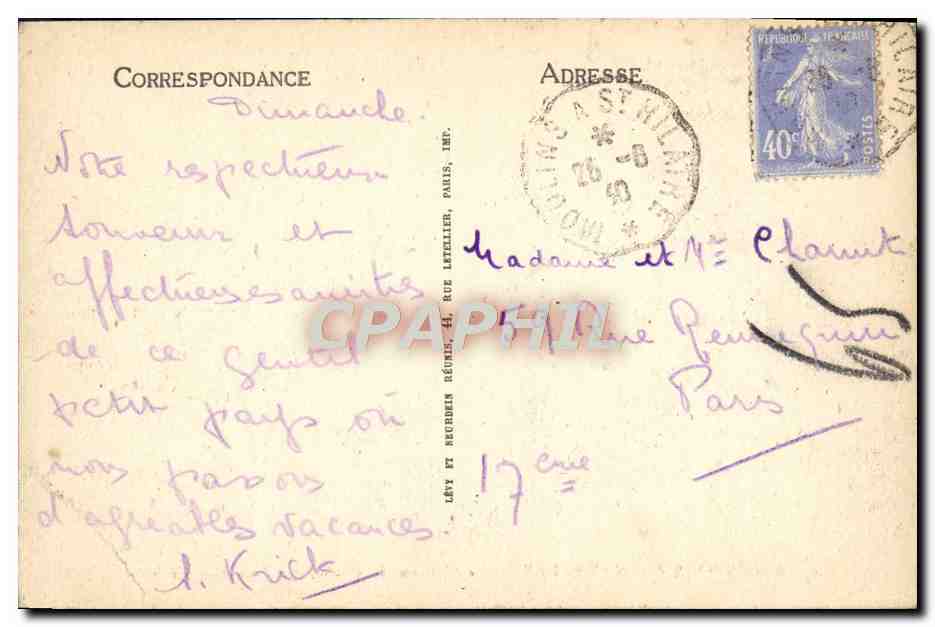 CORRESPONDANCE
Dimanche.
Notre respectueux
souvenir et
affectueuses amitiés
de ce gentil
petit pays où
nous passons
d'agréables vacances.
Krick
LÉVY ET NEURDEIN RÉUNIS, 44, RUE LETELLIER, PARIS, IMP.
ADRESSE
REPUBLIQUE FRANÇAISE
40c
POSTES
MOULINS A ST HILAIRE
26 -8
30
Madame et Mr
Rue
Paris
17 eme
CPAPHIL